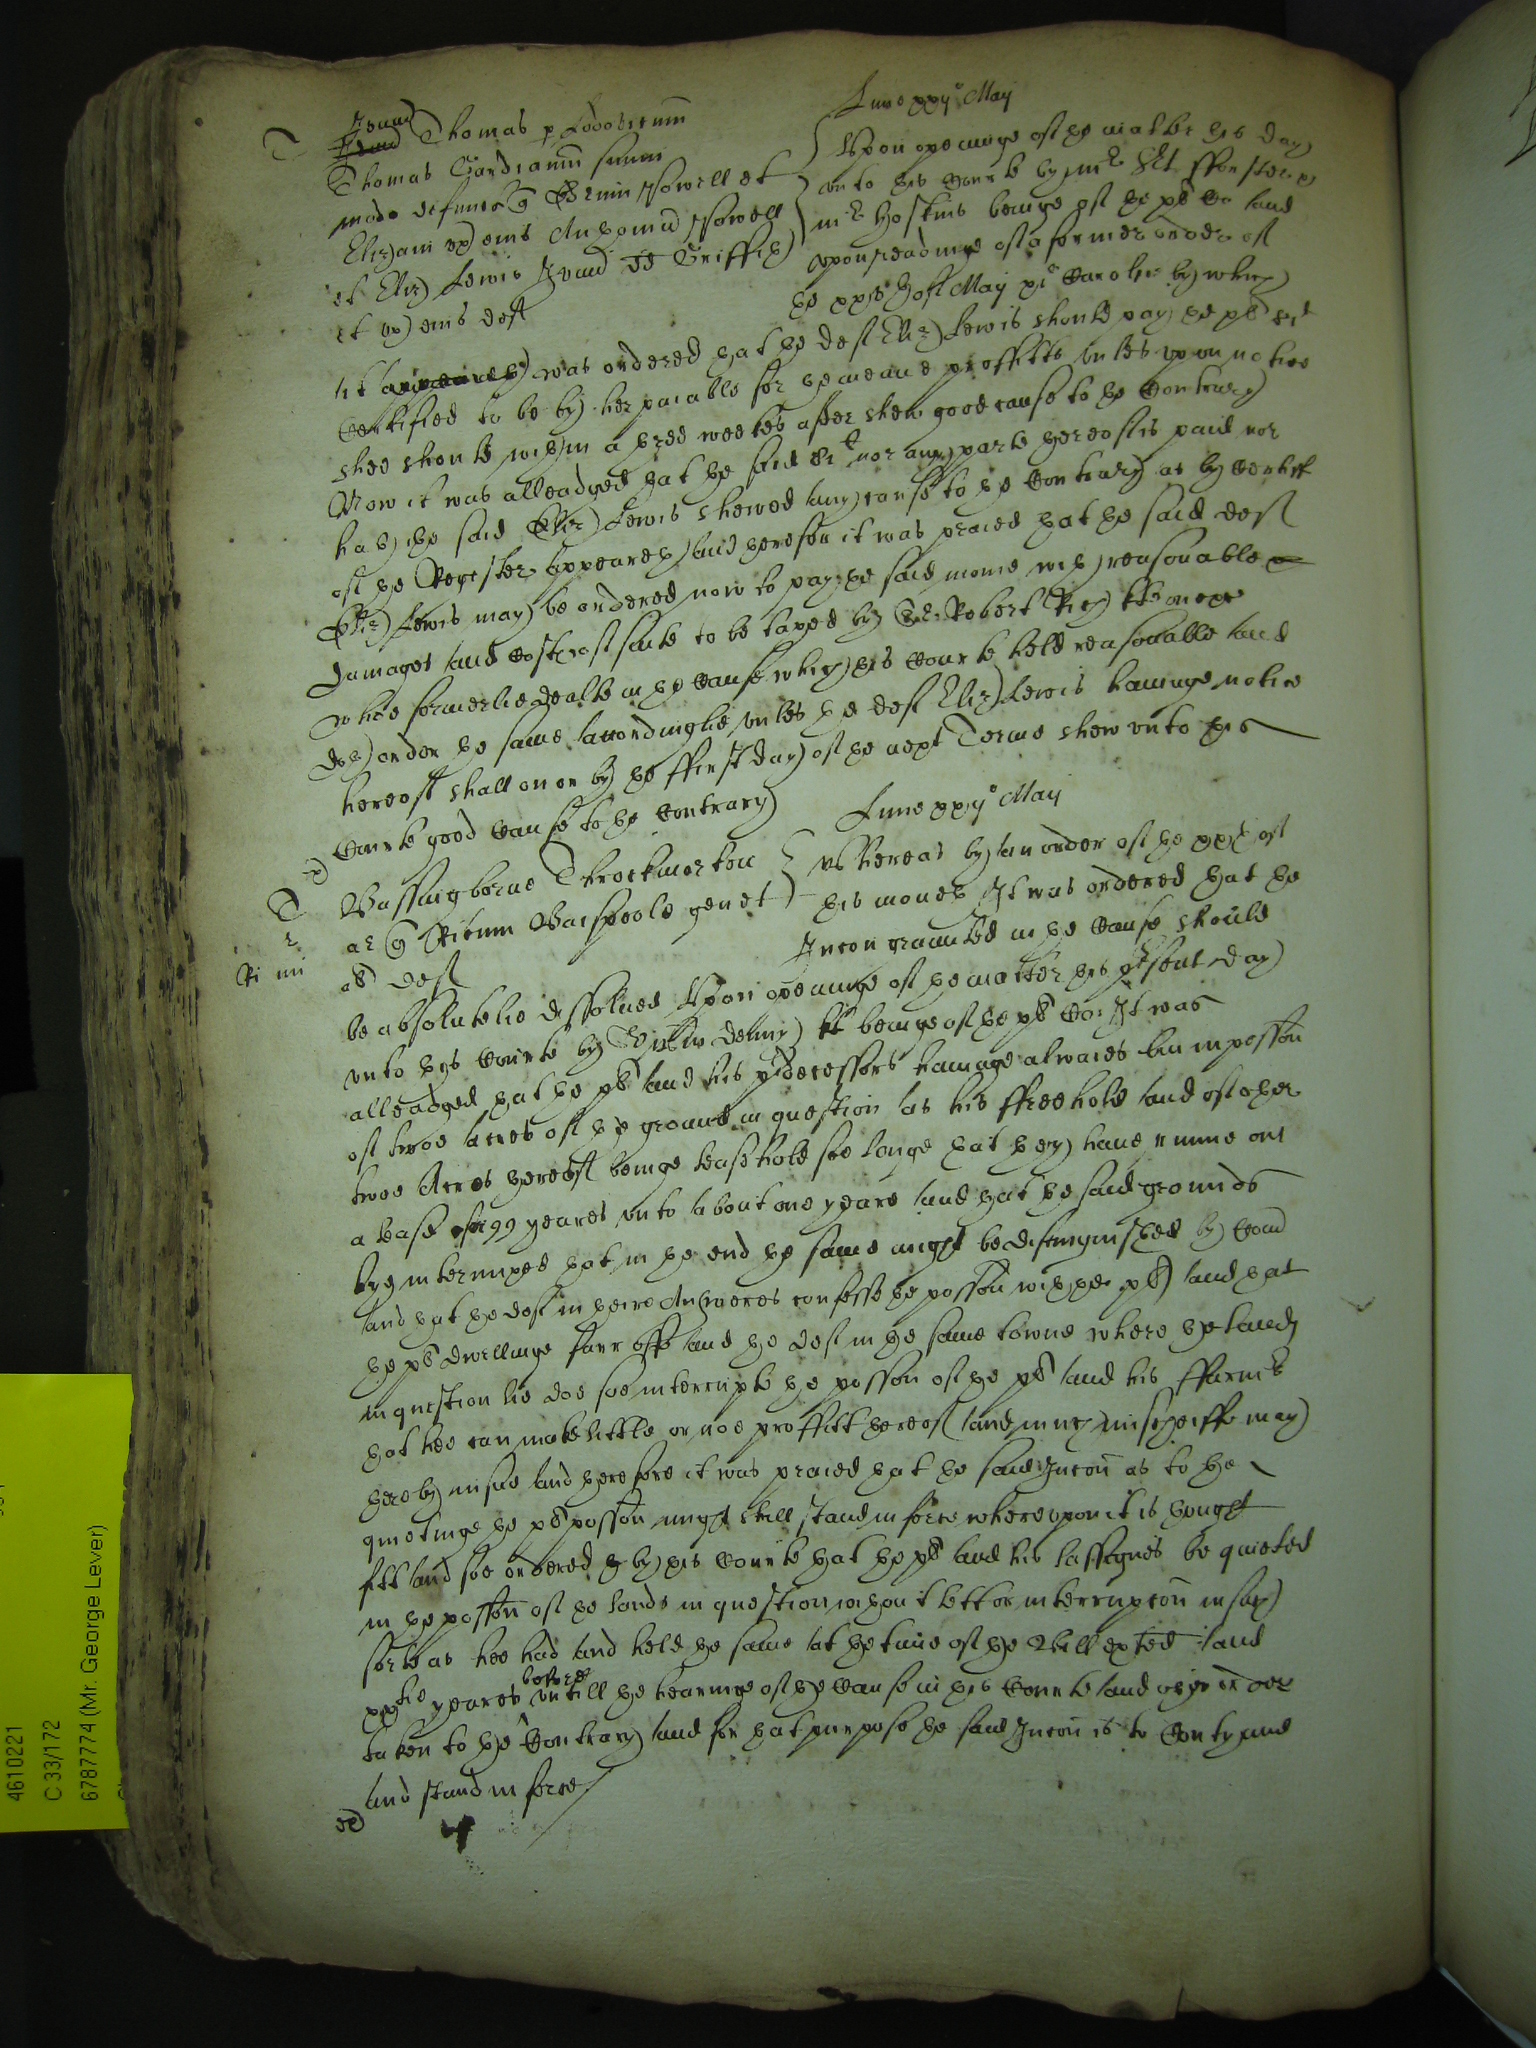 Lune xxij° May
T
Jevan Thomas p Lodovicum
Thomas Gardianum suum
modo defunct q Howell et
Eliz) am ux) eius Howell
et Eliz) Lewis Jevan Griffith
et ux) eius def
Upon openinge of the matter this day
unto this Courte by mr
mr Hoskins beinge of the pl Co and
upon readinge of a former order of
the May Caroli by which
it was ordered that the def Eliz) Lewis should pay the pl
certified to be by her paiable for the meane proffitts unles upon notice
shee should within a three weekes after shew good cause to the contrary
Now it was alleadged that the said nor any parte thereof is paid nor
hath the said Eliz) Lewis shewed any cause to the contrary as by certiff
of the Register appeareth and therefore it was praied that the said def
Eliz) Lewis may be ordered now to pay the said monie with reasonable
damages and costs of suite to be taxed by Sr Robert Rich kt one of the
whoe formerlie dealte in the cause which this Courte held reasonable and
doth order the same accordinglie unles the def Eliz) Lewis havinge notice
hereof shall on or by the ffirst day of the next Terme shew unto this
Courte good cause to the contrary
Lune xxij° May
T
Bassingborne Throckmorton
ar q gener et
al def
Whereas by an order of the xxth of
this moneth It was ordered that the
Injuncon graunted in the cause should
be absolutelie dissolved Upon openinge of the matter this present day
unto this Courte by kt beinge of the pl Co: It was
alleadged that the pl and his predecessors havinge alwaies bin in possion
of twoe acres of the ground in question as his ffreehold and of other
twoe Acres thereof beinge leasehold soe longe that they have runne out
a lease for 99 yeares unto about one yeare and that the said grounds
bye intermixed that in the end the same might be distinguished by Com
and that the def in theire Answeres confesse the possion with the pl and that
the pl dwellinge farr off and the def in the same towne where the lands
in question lie doe soe interrupte the possion of the pl and his ffarmrs
that hee can make little or noe proffitt thereof and much mischeiffe may
thereby insue and therefore it was praied that the said Injuncon as to the
quietinge the pl possion might still stand in force whereupon it is thought
fitt and soe ordered by this Courte that the pl and his assignes be quieted
in the possion of the lands in question without lett or interrupcon in such
sorte as hee had and held the same at the time of the Bill exhited and
yeares before untill the hearinge of the cause in this Courte and other order
taken to the Contrary and for that purpose the said Injuncon is to Contynue
and stand in force
4610221
C 33/172
6787774 (Mr. George Lever)